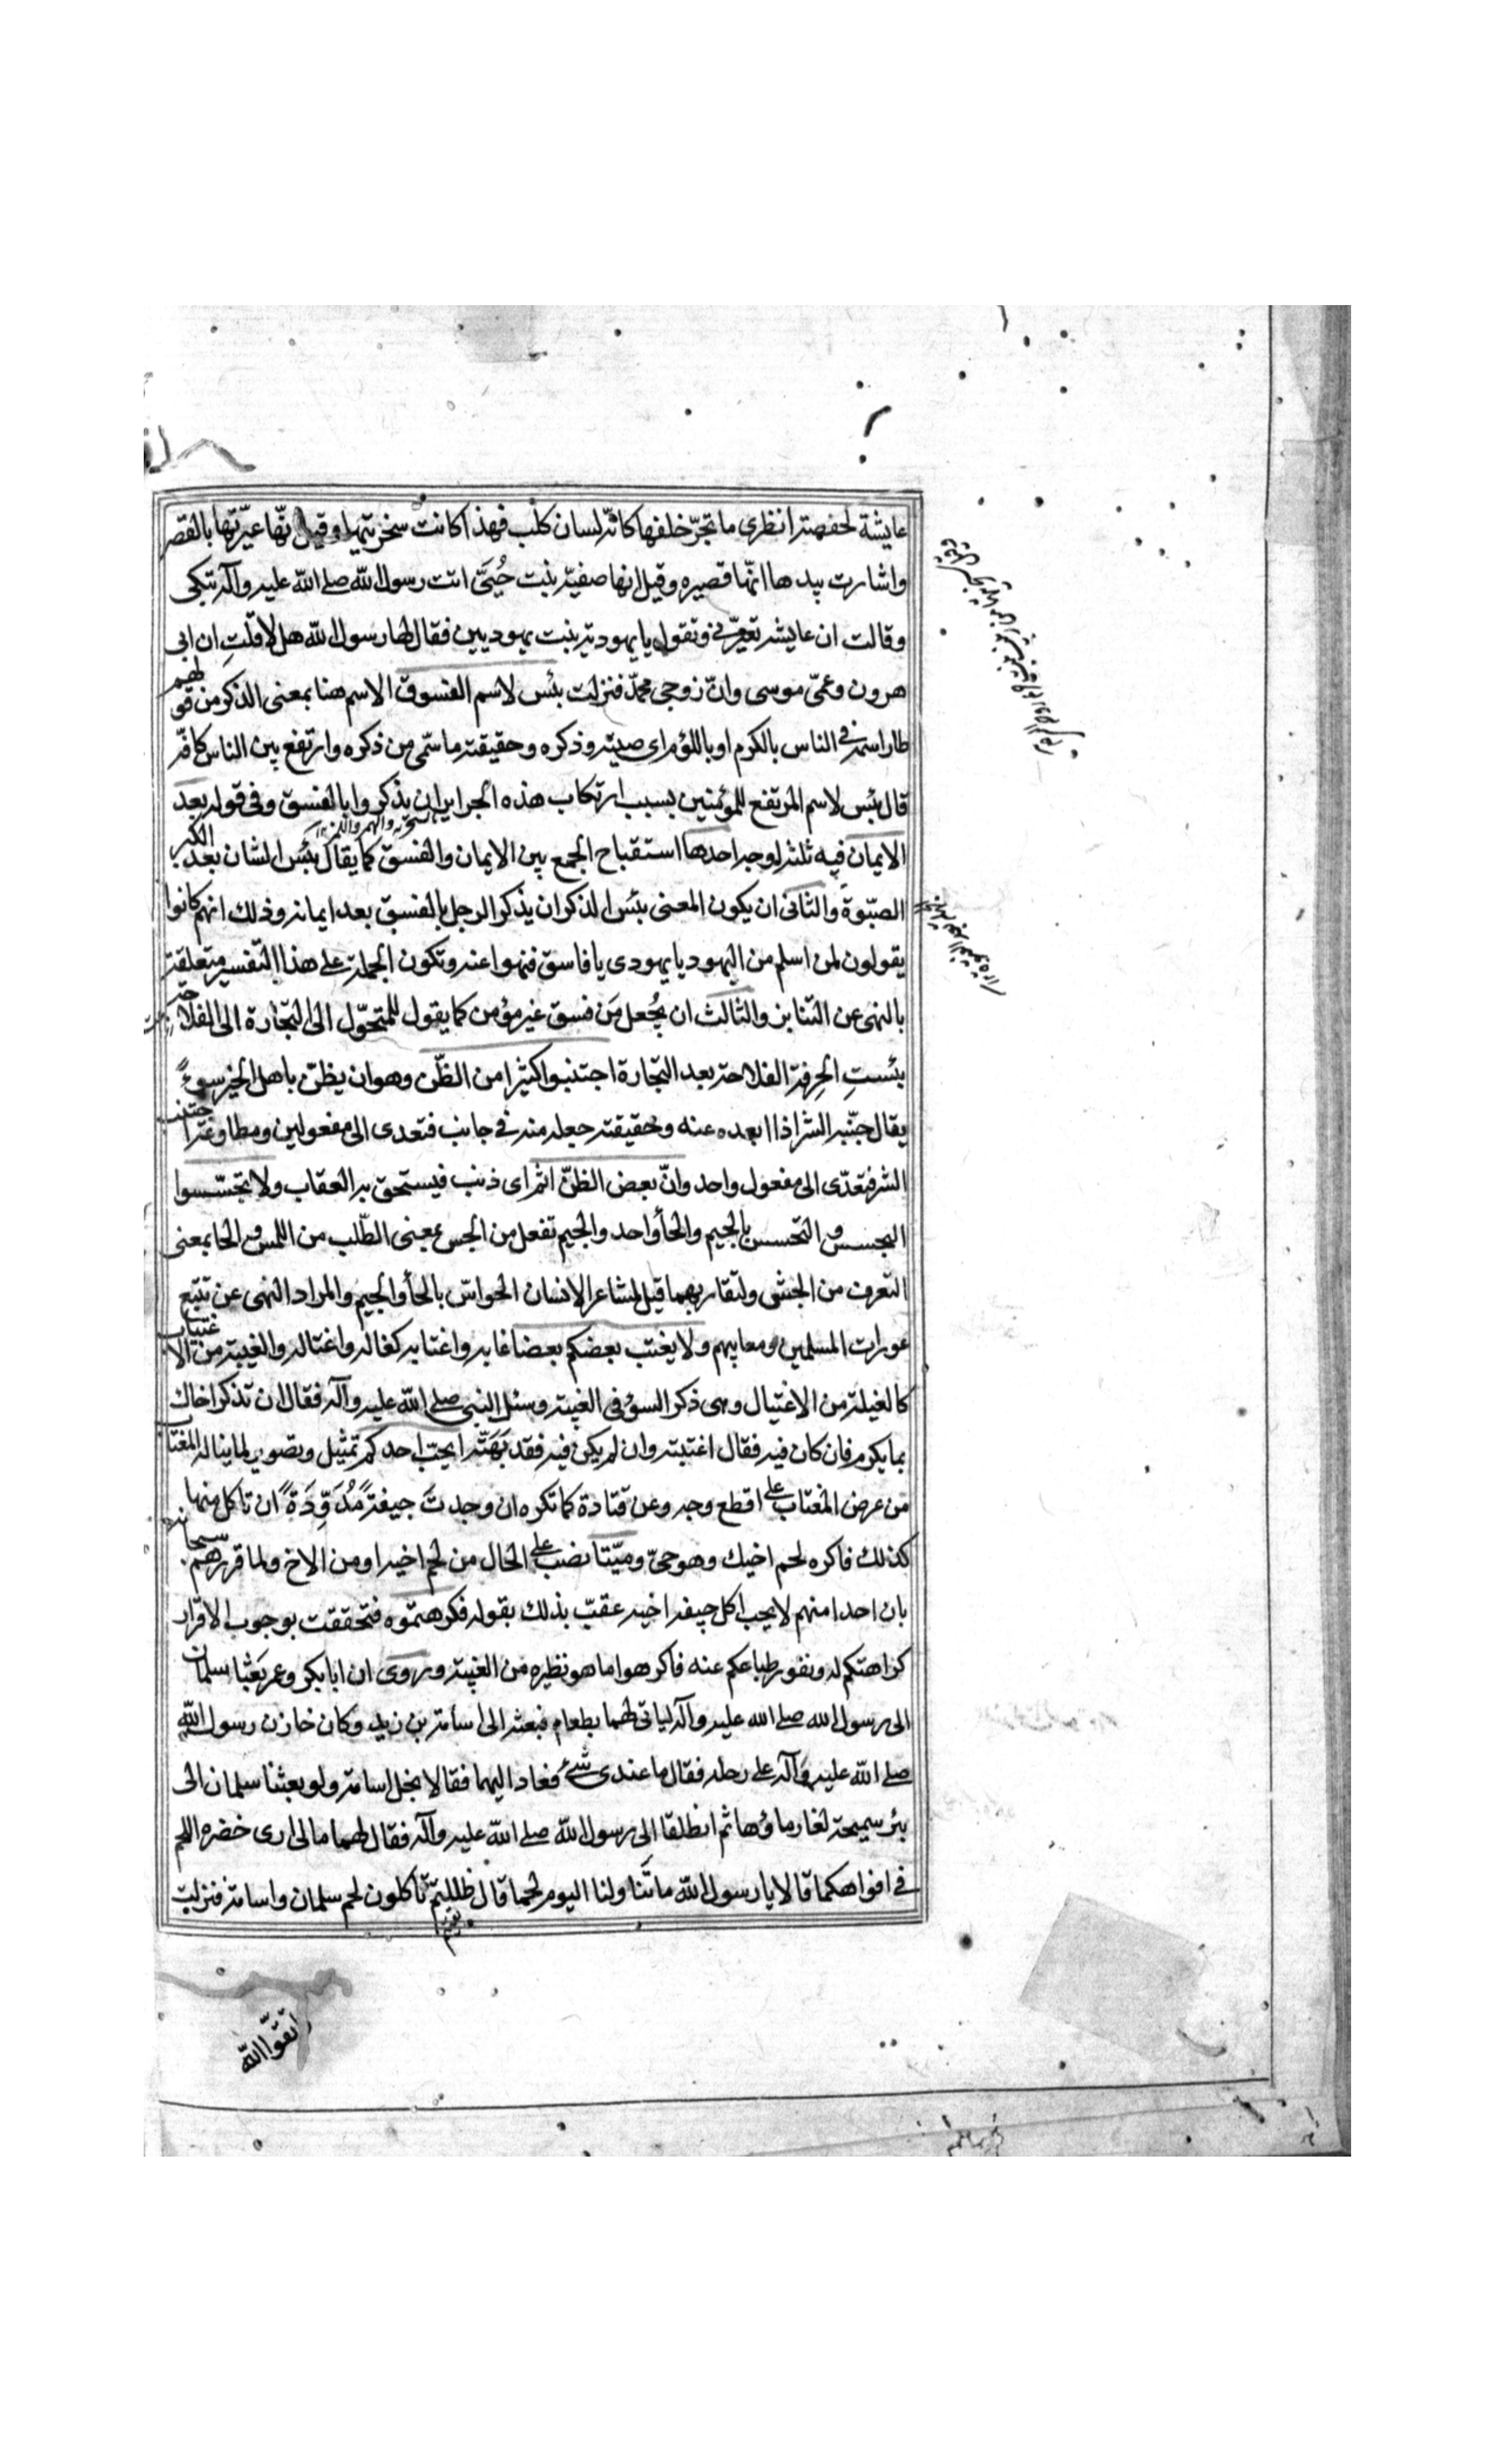 عايشة لحفصة انظرى ما تجرّ خلفها كانّه لسان كلب فهذا كانت سخريتهما وقيل انّها عيّرتها بالقصر
واشارت بيدها انّها قصيره وقيل انها صفيّة بنت حُيَىّ اتت رسول الله صلى الله عليه وآله تبكى
وقالت ان عايشه تعيّرنى وتقول يا يهودية بنت يهوديين فقال لها رسول الله هل لا قلتِ ان ابى
هرون وعمّى موسى وانّ زوجى محمّد فنزلت بئس لاسم الفسوق الاسم هنا بمعنى الذكر من قولهم
طار اسمه فى الناس بالكرم او باللؤم اى صيته وذكره وحقيقته ما سمّى من ذكره وارتفع بين الناس كانّه
قال بئس لاسم المرتفع للمؤمنين بسبب ارتكاب هذه الجراير ان يذكروا بالفسق وفى قوله بعد
الايمان فيه ثلثة اوجه احدها استقباح الجمع بين الايمان والفسق كما يقال بئس الشان بعد الكبر
الصبّوة والثانى ان يكون المعنى بئس الذكر ان يذكر الرجل بالفسق بعد ايمانه وذلك انهم كانوا
يقولون لمن اسلم من اليهود يا يهودى يا فاسق فنهوا عنه وتكون الجملة على هذا التفسير متعلقة
بالنهى عن التنابز والثالث ان يُجعل مَن فسق غير مؤمن كما يقول للمتحوّل الى التجارة الى الفلاحة
بئستِ الحِرفة الفلاحة بعد التجارة اجتنبوا كثيرا من الظّن وهو ان يظنّ باهل الخير سوءً
يقال جنّبه الشر اذا ابعده عنه وحقيقته جعله منه فى جانب فتعدى الى مفعولين ومطاوعته اجتنب
الشر فتعدّى الى مفعول واحد وانّ بعض الظنّ اثم اى ذنب فيستحق به العقاب ولا تجسّسوا
التجسس والتحسس بالجيم والحاء واحد والجيم تفعل من الجس بمعنى الطّلب من اللمس والحا بمعنى
التعرف من الحس ولتقاربهما قيل لمشاعر الانسان الحواسّ بالحاء والجيم والمراد النهى عن تتبّع
عورات المسلمين ومعايبهم ولا يغتب بعضكم بعضا غابه واغتابه كغاله واغتاله والغيبة من الاغتياب
كالغيلة من الاغتيال وهى ذكر السؤ فى الغيبة وسئل النبى صلى الله عليه وآله فقال ان تذكر اخاك
بما يكره فان كان فيه فقال اغتبته وان لم يكن فيه فقد بَهَتّه ايحبّ احدكم تمثيل وتصوير لما يناله المغتاب
من عرض المغتاب على اقطع وجه وعن قتادة كما تكره ان وجدتَ جيفةً مُدَوِّدَةً ان تاكل منها
كذلك فاكره لحم اخيك وهو حىّ وميّتا نصب على الحال من لحم اخيه او من الاخ ولما قررهم سبحانه
بان احدا منهم لا يحب اكل جيفه اخيه عقبّ بذلك بقوله فكرهتموه فتحققت بوجوب الاقرار
كراهتكم له ونفور طباعكم عنه فاكرهوا ما هو نظيره من الغيبة وروى ان ابا بكر وعمر بَعَثا سلمان
الى رسول الله صلى الله عليه وآله لياتى لهما بطعام فبعثه الى اسامة بن زيد وكان خازن رسول الله
صلى الله عليه وآله على رحله فقال ما عندى شئ فعاد اليهما فقالا بخل اسامة ولو بعثنا سلمان الى
بئر سميحة لغار ماؤها ثم انطلقا الى رسول الله صلى الله عليه وآله فقال لهما مالى ارى خضره اللحم
فى افواهكما قالا يا رسول الله ما تنا ولنا اليوم لحما قال ظللتم تاكلون لحم سلمان واسامة فنزلت
اتقوّا الله